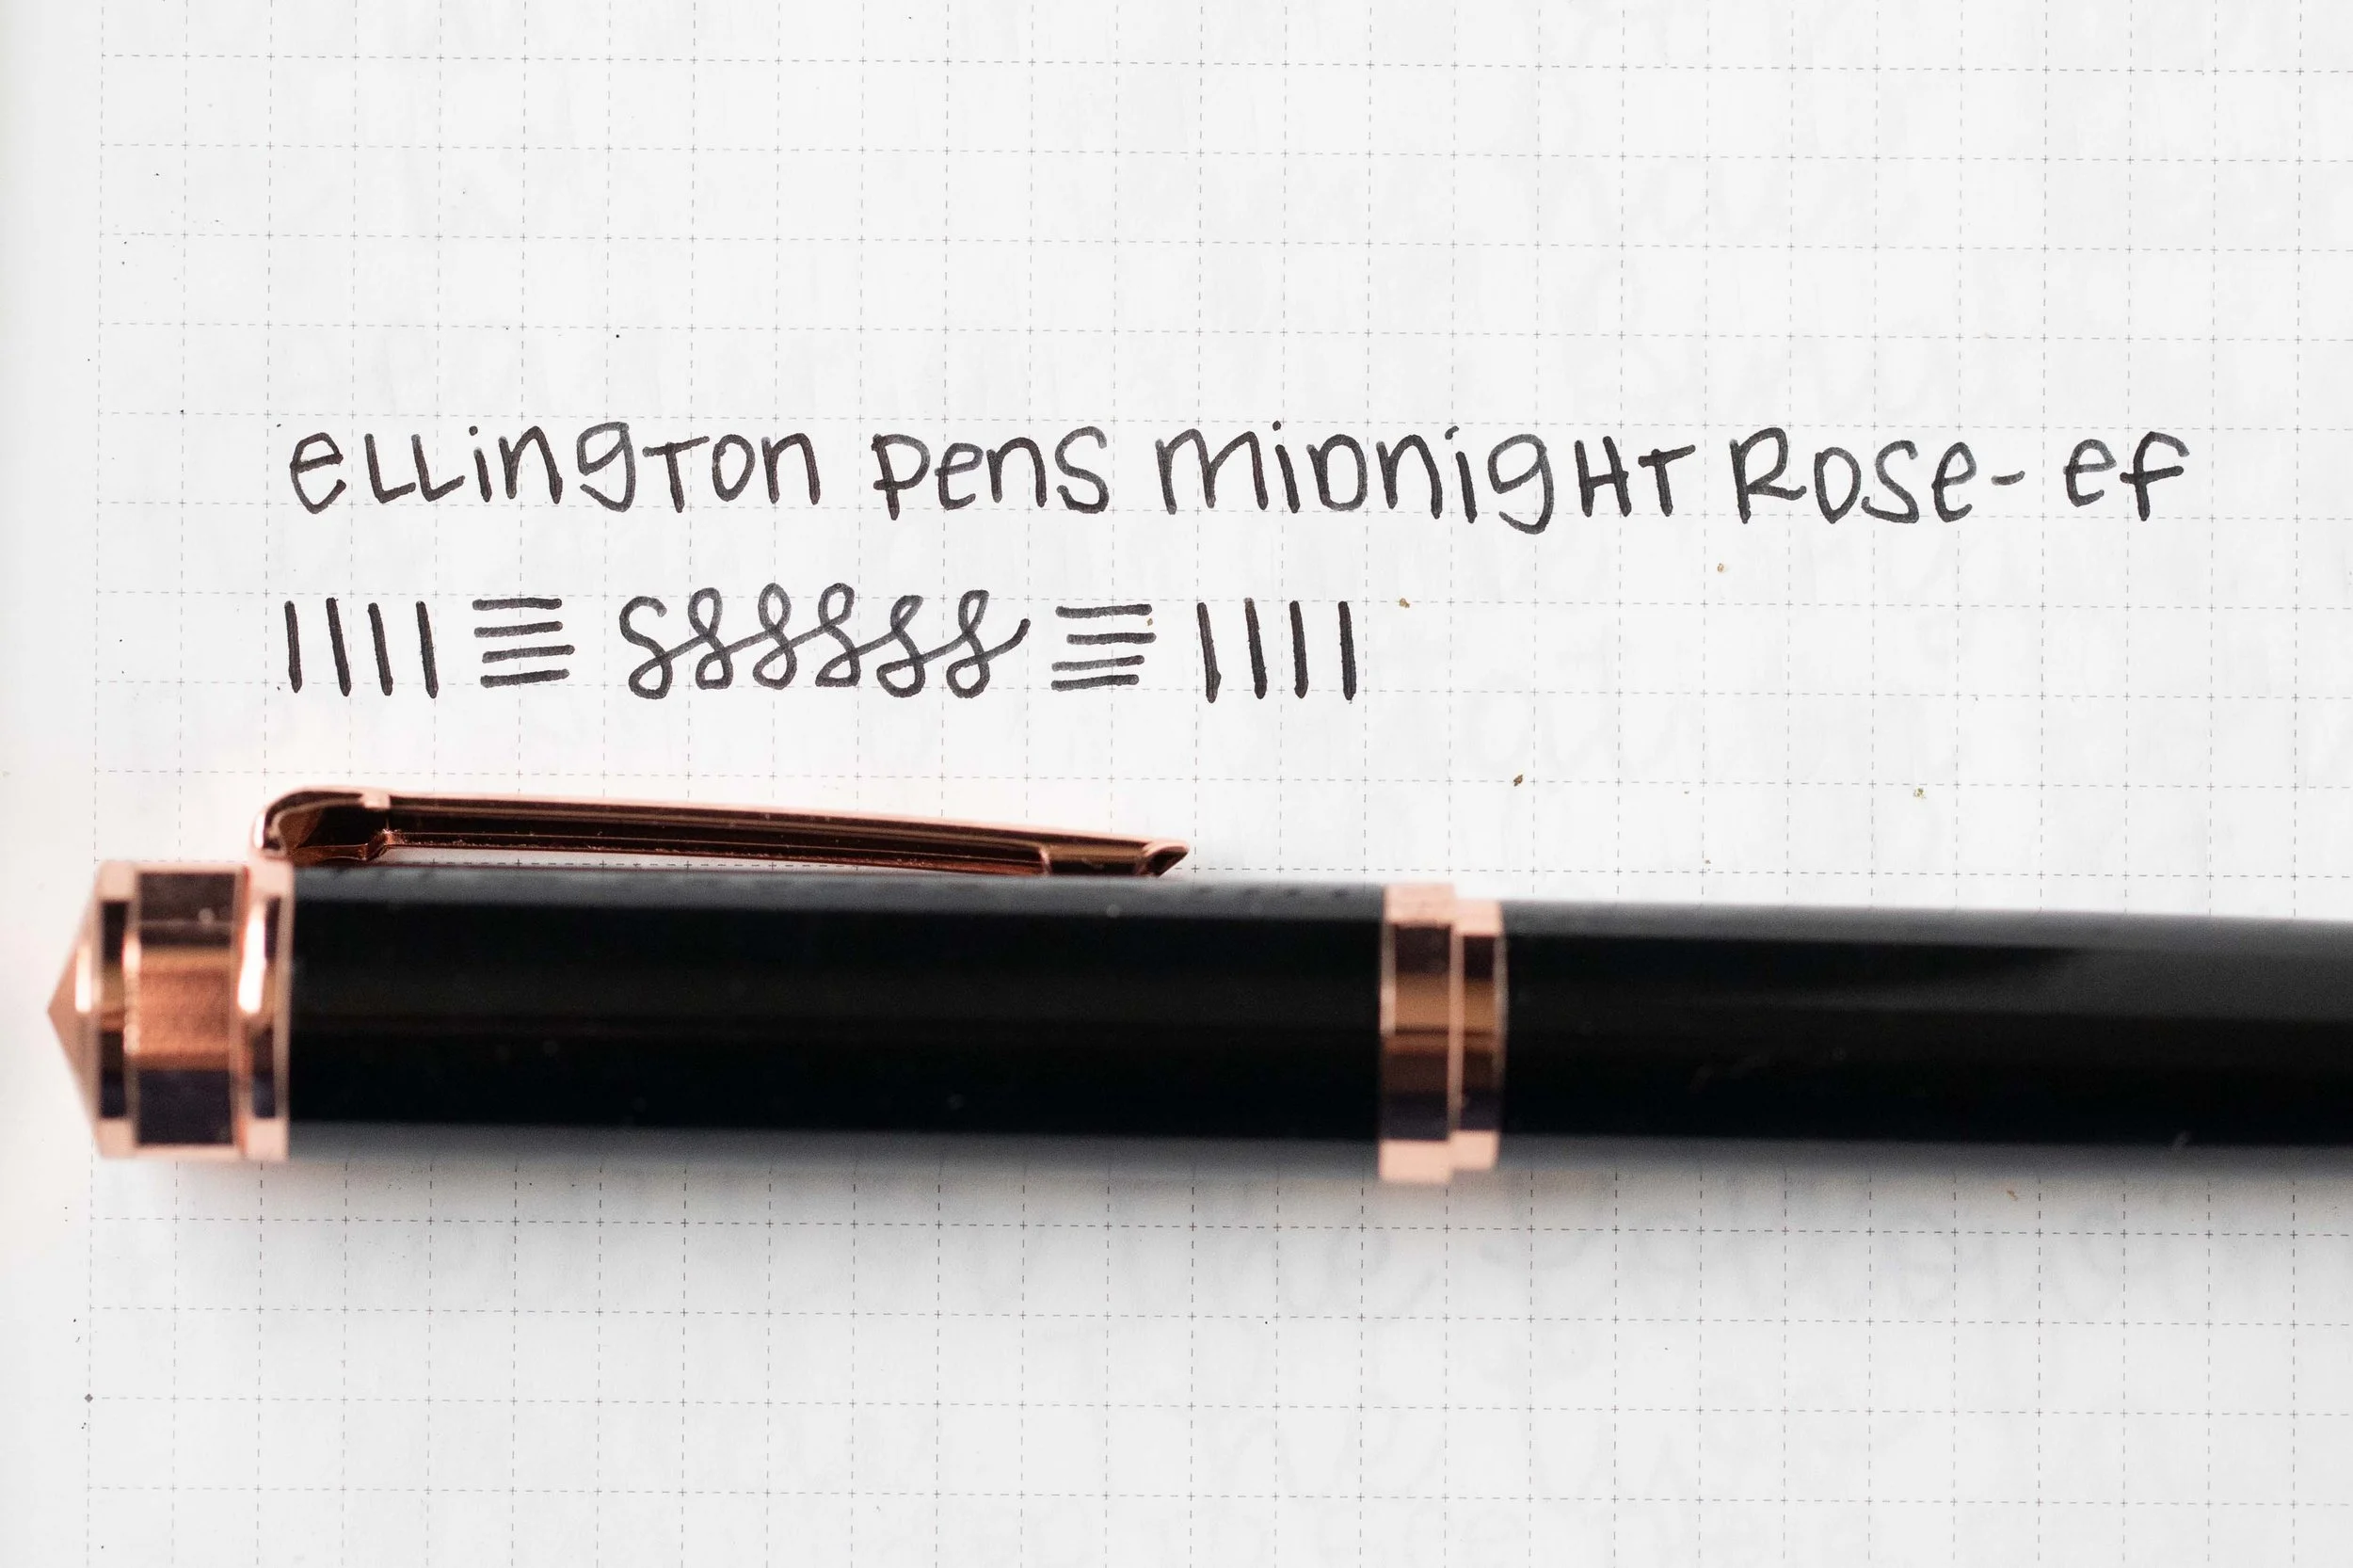 ellington pens midnight Rose- ef